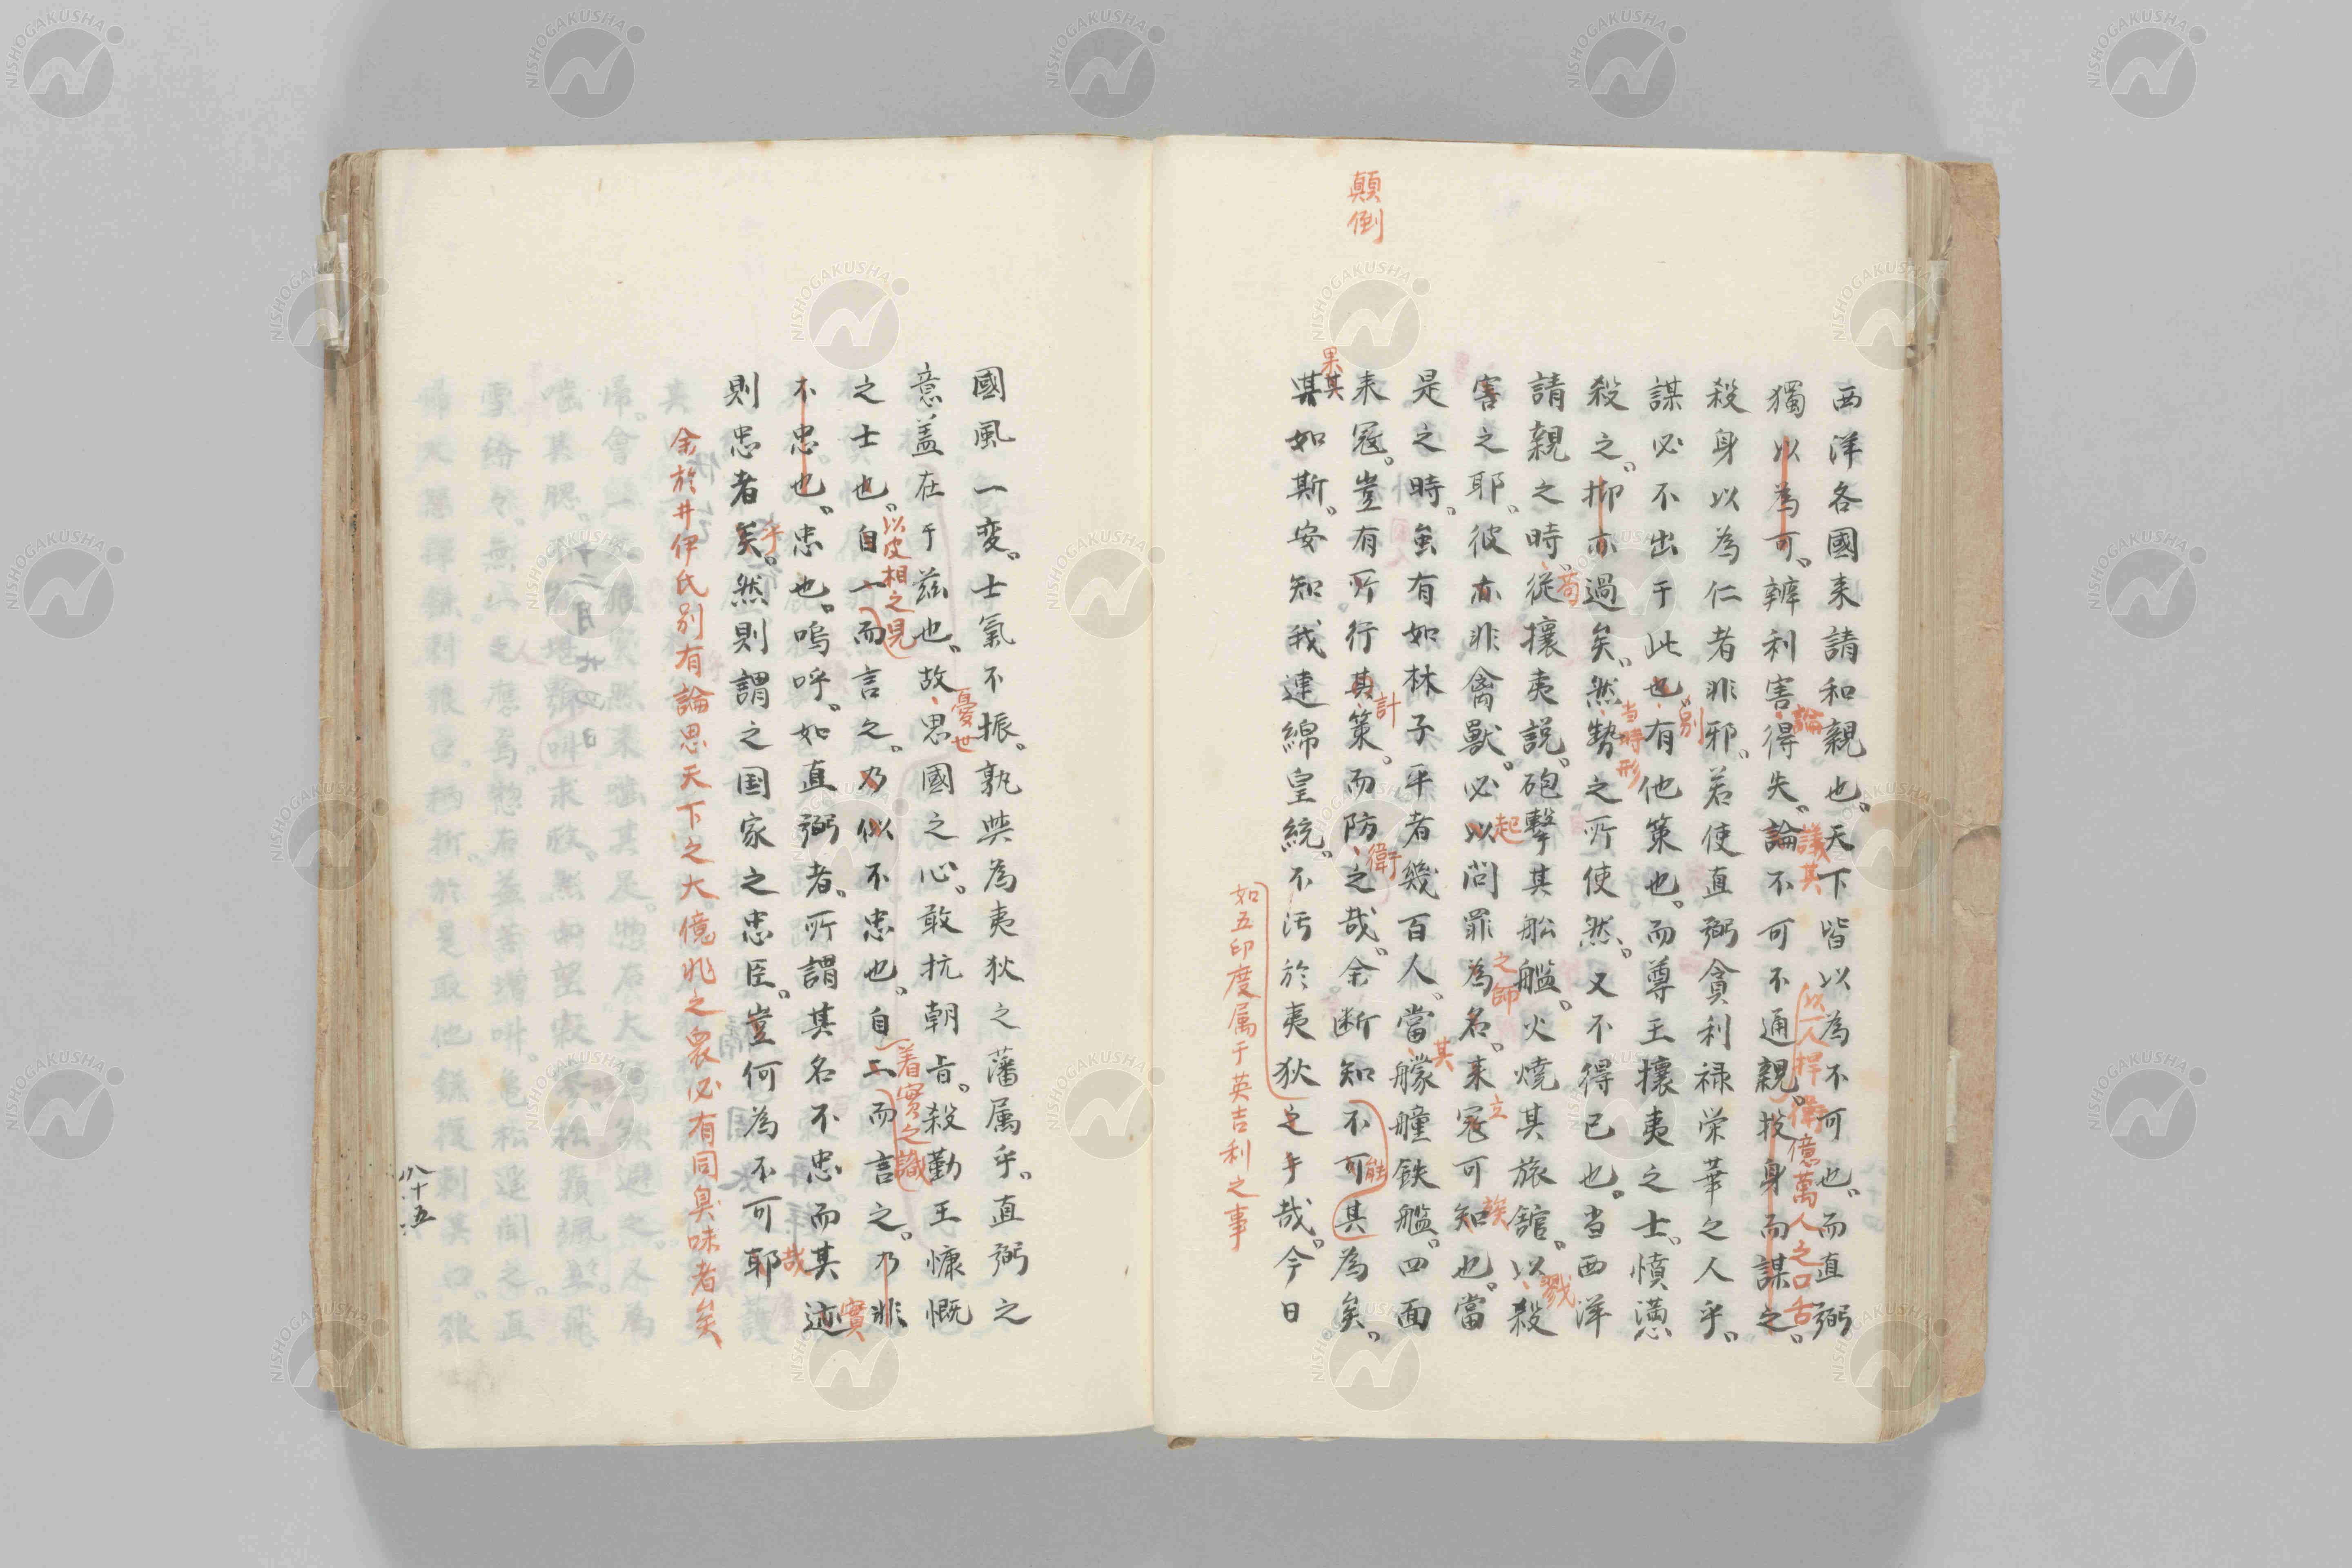 顛倒
西洋各國来請和親也。天下皆以為不可也。而直弼
獨以為可。辨利害得失。論不可不通親。投身而謀之。
論
議其
以一人捍衛億萬人之口舌
殺身以為仁者非邪。若使直弼貪利禄栄華之人乎。
謀必不出于此也。有他策也。而尊王攘夷之士。憤懣
別
殺之。抑亦過矣。然勢之所使然。又不得已也。当西洋
当時形
請親之時。從攘夷説。砲撃其舩艦。火焼其旅舘。以殺
苟
戮
害之耶。彼亦非禽獸。必以問罪為名。来冦可知也。當
起
之師
立
族
是之時。虽有如林子平者幾百人。當艨艟鉄艦。四面
其
来冦。豈有所行其策。而防之哉。余断知不可其為矣。
計
衛
能
果其
其如斯。安知我連綿皇統。不汚於夷狄之手哉。今日
如五印度属于英吉利之事
國風一変。士氣不振。孰與為夷狄之藩属乎。直弼之
意盖在于茲也。故思國之心。敢抗朝旨。殺勤王慷慨
憂世
之士也。自一而言之。乃似不忠也。自二而言之。乃非
以皮相之見
着實之識
不忠也。忠也。嗚呼。如直弼者。所謂其名不忠而其迹
實
則忠者矣。然則謂之国家之忠臣。豈何為不可耶
乎
哉
余於井伊氏別有論思天下之大億兆之衆必有同臭味者矣
八十五